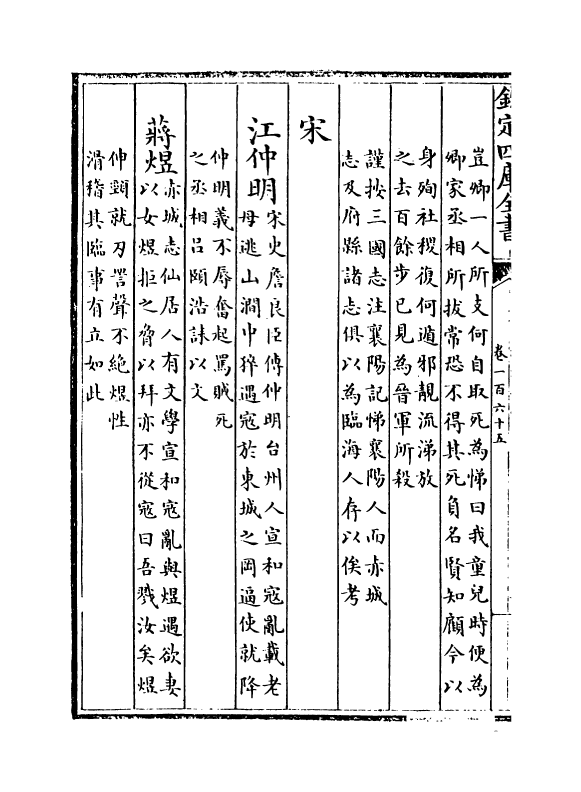 欽定四庫全書
卷一百六十五
豈卿一人所支何自取死為悌曰我童兒時便為
卿家丞相所拔常恐不得其死負名賢知顧今以
身殉社稷復何遁邪靚流涕放
之去百餘步已見為晉軍所殺
謹按三國志注襄陽記悌襄陽人而赤城
志及府縣諸志俱以為臨海人存以俟考
宋
江仲明宋史詹良臣傳仲明台州人宣和寇亂載老
母逃山澗中猝遇寇於東城之岡逼使就降
仲明義不辱奮起罵賊死
之丞相呂頤浩誄以文
蔣煜赤城志仙居人有文學宣和寇亂與煜遇欲妻
以女煜拒之脅以拜亦不從寇曰吾戮汝矣煜
伸頸就刃詈聲不絶煜性
滑稽其臨事有立如此